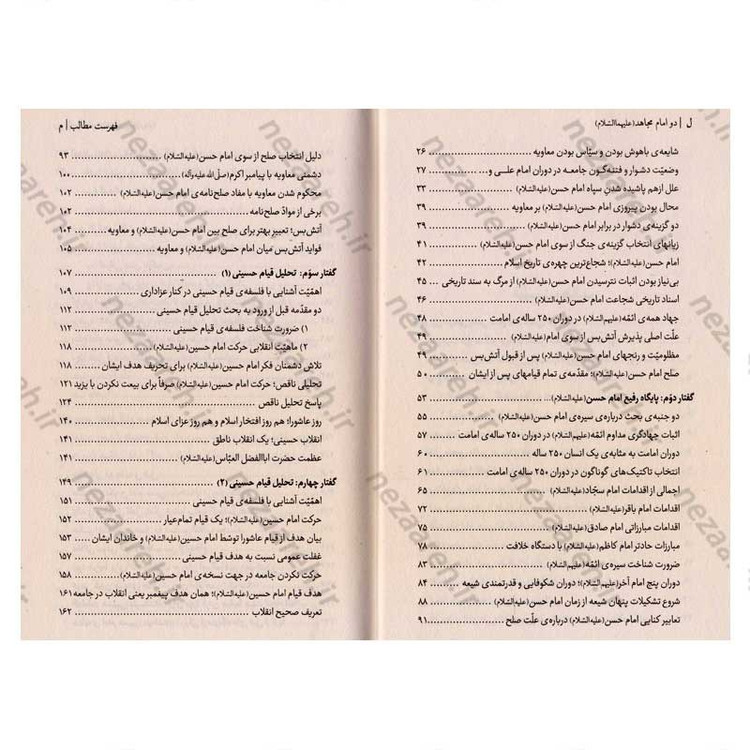 ل | دو امام مجاهد(علیهماالسّلام)
شایعه‌ی باهوش بودن و سیّاس بودن معاویه ۲۶
وضعیّت دشوار و فتنه‌گون جامعه در دوران امام علی و... ۲۷
علل ازهم پاشیده شدن سپاه امام حسن(علیه‌السّلام) ۳۳
محال بودن پیروزی امام حسن(علیه‌السّلام) بر معاویه ۳۹
دو گزینه‌ی دشوار در برابر امام حسن(علیه‌السّلام) ۳۹
زیانهای انتخاب گزینه‌ی جنگ از سوی امام حسن(علیه‌السّلام) ۴۱
امام حسن(علیه‌السّلام)؛ شجاع‌ترین چهره‌ی تاریخ اسلام ۴۲
بی‌نیاز بودن اثبات نترسیدن امام حسن(علیه‌السّلام) از مرگ به سند تاریخی ۴۵
اسناد تاریخی شجاعت امام حسن(علیه‌السّلام) ۴۶
جهاد همه‌ی ائمّه(علیهم‌السّلام) در دوران ۲۵۰ ساله‌ی امامت ۴۸
علّت اصلی پذیرش آتش‌بس از سوی امام(علیه‌السّلام) ۴۹
مظلومیّت و رنجهای امام حسن(علیه‌السّلام) پس از قبول آتش‌بس ۴۹
صلح امام حسن(علیه‌السّلام)؛ مقدّمه‌ی تمام قیامهای پس از ایشان ۵۰
گفتار دوّم: پایگاه رفیع امام حسن(علیه‌السّلام) ۵۳
دو جنبه‌ی بحث درباره‌ی سیره‌ی امام حسن(علیه‌السّلام) ۵۵
اثبات جهادگری مداوم ائمّه(علیهم‌السّلام) در دوران ۲۵۰ ساله‌ی امامت ۵۷
دوران امامت به مثابه‌ی یک انسان ۲۵۰ ساله ۶۰
انتخاب تاکتیک‌های گوناگون در دوران ۲۵۰ ساله‌ی امامت ۶۱
اجمالی از اقدامات امام سجّاد(علیه‌السّلام) ۶۵
اقدامات امام باقر(علیه‌السّلام) ۷۲
اقدامات مبارزاتی امام صادق(علیه‌السّلام) ۷۵
مبارزات حادتر امام کاظم(علیه‌السّلام) با دستگاه خلافت ۷۸
ضرورت شناخت سیره‌ی ائمّه(علیهم‌السّلام) ۸۳
دوران پنج امام آخر(علیهم‌السّلام)؛ دوران شکوفایی و قدرتمندی شیعه ۸۴
شروع تشکیلات پنهان شیعه از زمان امام حسن(علیه‌السّلام) ۸۸
تعابیر کنایی امام حسن(علیه‌السّلام) درباره‌ی علّت صلح ۹۱
فهرست مطالب | م
دلیل انتخاب صلح از سوی امام حسن(علیه‌السّلام) ۹۳
دشمنی معاویه با پیامبر اکرم(صلّی‌الله‌علیه‌وآله) ۱۰۰
محکوم شدن معاویه با مفاد صلح‌نامه‌ی امام حسن(علیه‌السّلام) ۱۰۲
برخی از موادّ صلح‌نامه ۱۰۲
آتش‌بس؛ تعبیر بهتر برای صلح بین امام حسن(علیه‌السّلام) و معاویه ۱۰۴
فواید آتش‌بس میان امام حسن(علیه‌السّلام) و معاویه ۱۰۵
گفتار سوّم: تحلیل قیام حسینی (۱) ۱۰۷
اهمّیّت آشنایی با فلسفه‌ی قیام حسینی در کنار عزاداری ۱۰۹
دو مقدّمه قبل از ورود به بحث تحلیل قیام حسینی ۱۱۲
۱) ضرورت شناخت فلسفه‌ی قیام حسینی ۱۱۲
۲) ماهیّت انقلابی حرکت امام حسین(علیه‌السّلام) ۱۱۸
تلاش دشمنان فکر امام حسین(علیه‌السّلام) برای تحریف هدف ایشان ۱۱۸
تحلیلی ناقص؛ حرکت امام حسین(علیه‌السّلام) صرفاً برای بیعت نکردن با یزید ۱۲۱
پاسخ تحلیل ناقص ۱۲۴
روز عاشورا؛ هم روز افتخار اسلام و هم روز عزای اسلام ۱۴۰
انقلاب حسینی؛ یک انقلاب ناطق ۱۴۱
عظمت حضرت اباالفضل العبّاس(علیه‌السّلام) ۱۴۱
گفتار چهارم: تحلیل قیام حسینی (۲) ۱۴۹
اهمّیّت آشنایی با فلسفه‌ی قیام حسینی ۱۵۱
حرکت امام حسین(علیه‌السّلام)؛ یک قیام تمام‌عیار ۱۵۲
بیان هدف از قیام عاشورا توسّط امام حسین(علیه‌السّلام) و خاندان ایشان ۱۵۳
غفلت عمومی نسبت به هدف قیام حسینی ۱۵۷
حرکت نکردن جامعه در جهت نسخه‌ی امام حسین(علیه‌السّلام) ۱۵۸
هدف قیام امام حسین(علیه‌السّلام)؛ همان هدف پیغمبر یعنی انقلاب در جامعه ۱۶۱
تعریف صحیح انقلاب ۱۶۲
nezaareh.ir